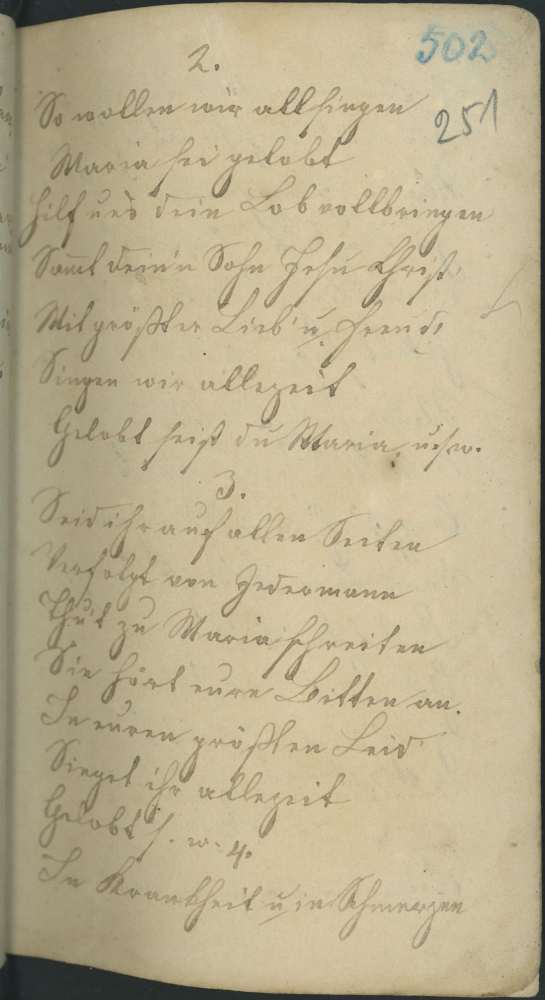 502
251
2.
So wollen wir all singen
Maria sei gelobt
Hilf uns dein Lob vollbringen
Sammt dein'n Sohn Jesu Christ,
Mit größter Lieb' u. Freud,
Singen wir allezeit
Gelobt seist du Maria, u.s.w.
3.
Seid ihr auf allen Seiten
Verfolgt von Jedermann
Thut zu Maria schreiten
Sie hört eure Bitten an.
In euren größten Leid
Singet ihr allezeit
Gelobt s. w. 4.
In Krankheit u. in Schmerzen